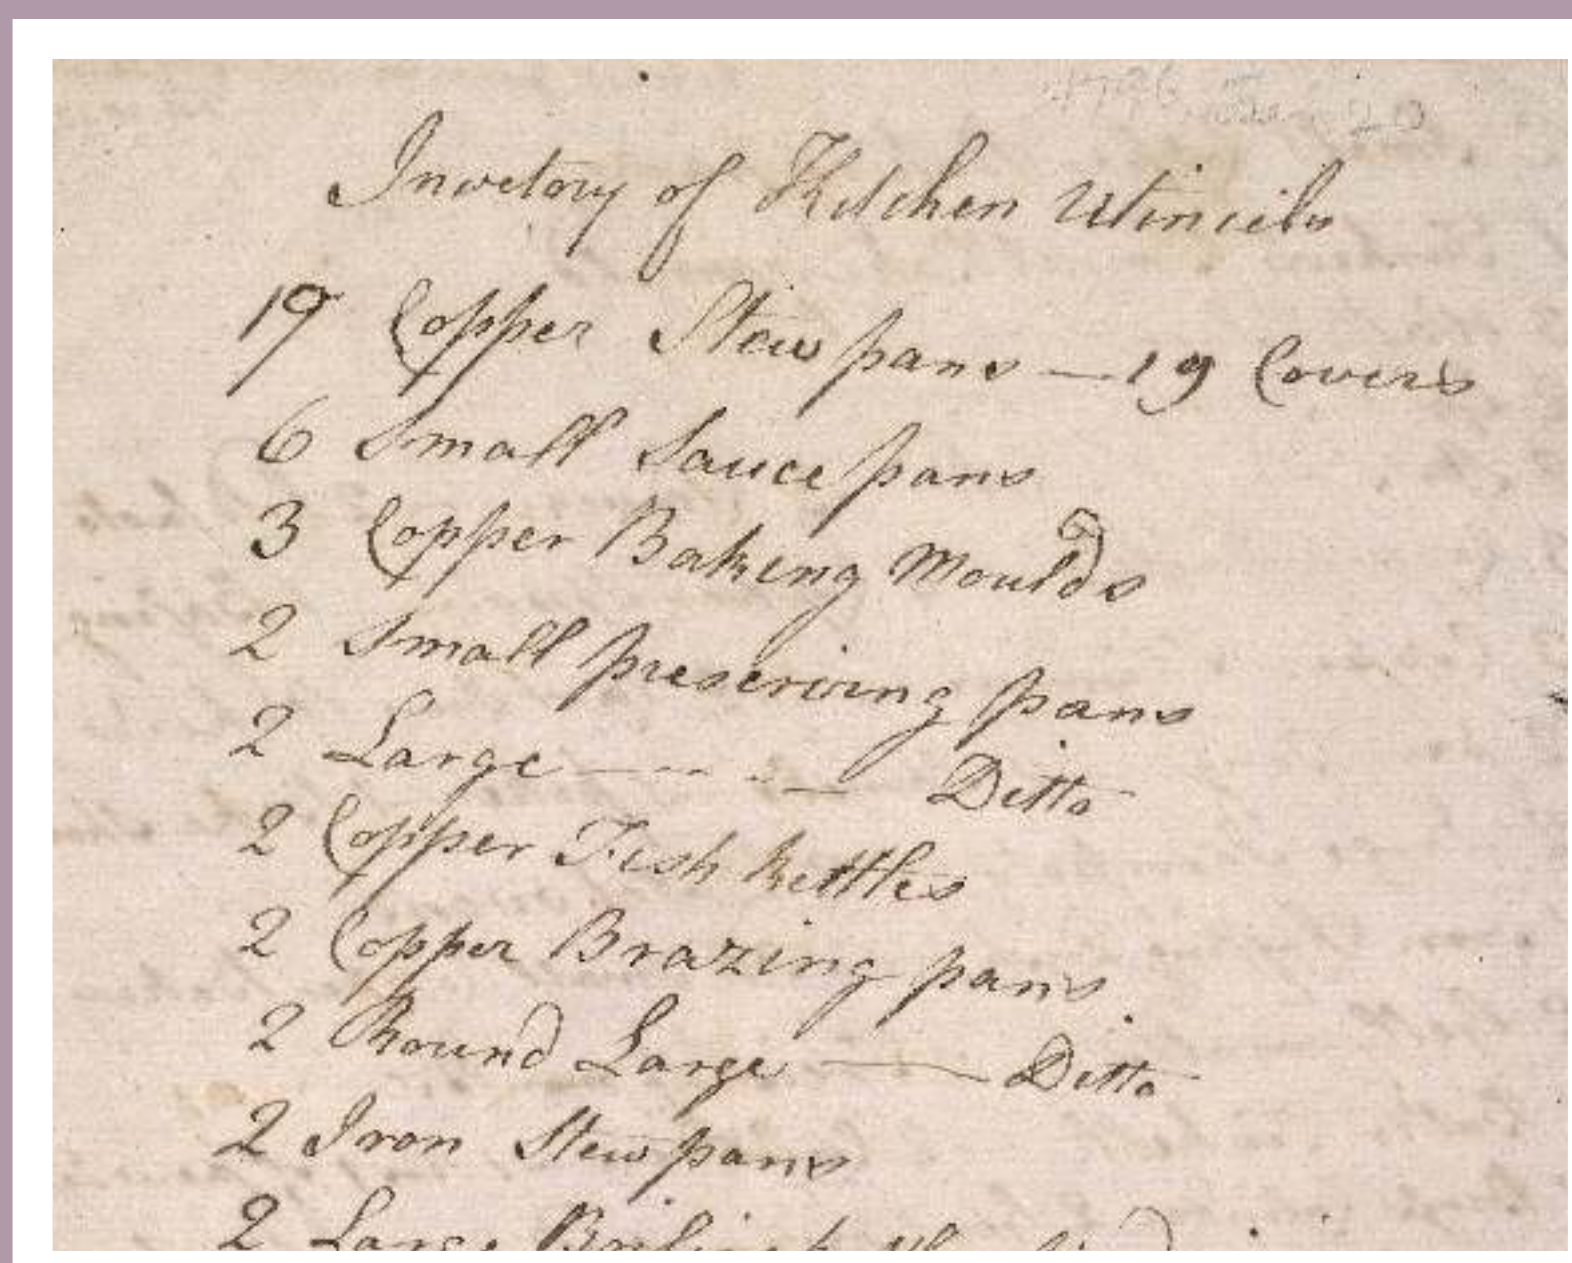 1796
Invetory of Kitchen Utincils
19 Copper Stew pans — 19 Covers
6 Small Sauce pans
3 Copper Baking Moulds
2 Small preserving pans
2 Large — Ditto
2 Copper Fish kettles
2 Copper Brazing pans
2 Round Large — Ditto
2 Iron Stew pans
2 Large